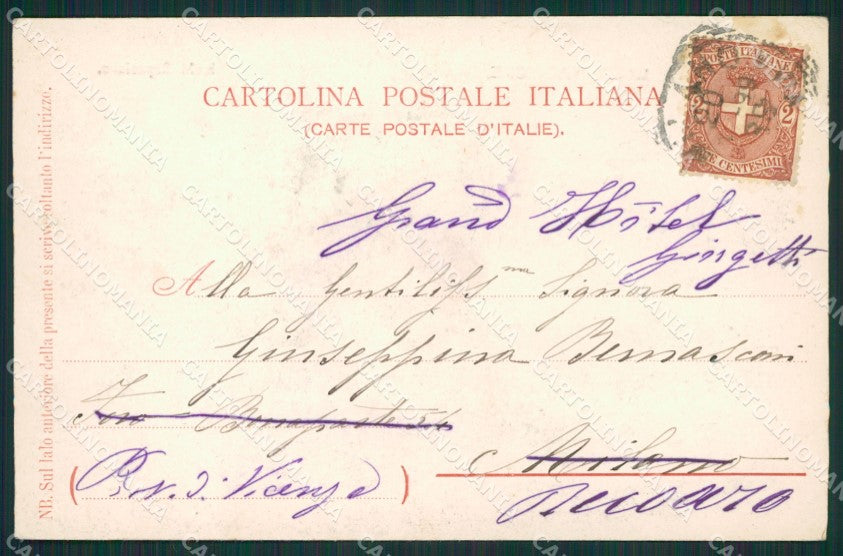 CARTOLINA POSTALE ITALIANA
(CARTE POSTALE D'ITALIE).
POSTE ITALIANE
2 2
DUE CENTESIMI
Grand Hôtel
Giorgetti
Alla Gentiliss ma Signora
Giuseppina Bernasconi
Foro Bonaparte 54
Milano
(Pr. v. di Vicenza)
Recoaro
NB. Sul lato anteriore della presente si scrive soltanto l'indirizzo.
CARTOLINOMANIA